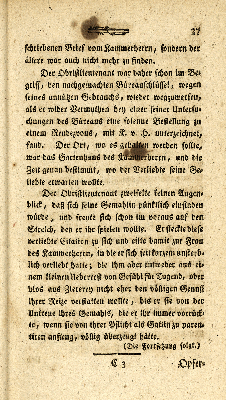 37
schriebenen Brief vom Kammerherrn, sondern der
ältere war auch nicht mehr zu finden.
Der Obristlieutenant war daher schon im Be-
griff, den nachgemachten Büreauschlüssel, wegen
seines unnützen Gebrauchs, wieder wegzuwerfen,
als er wider Vermuthen bey einer seiner Untersu-
chungen des Büreaus eine folgende Bestellung zu
einem Rendezvous, mit K. v. H. unterzeichnet,
fand. Der Ort, wo es gehalten werden sollte,
war das Gartenhaus des Kammerherrn, und die
Zeit genau bestimmt, wo der Verliebte seine Ge-
liebte erwarten wollte.
Der Obristlieutenant zweifelte keinen Augen-
blick, daß sich seine Gemahlin pünktlich einstellen
würde, und freute sich schon im voraus auf den
Streich, den er ihr spielen wollte. Er steckte diese
verliebte Citation zu sich und eilte damit zur Frau
des Kammerherrn, in die er sich seit kurzem unsterb-
lich verliebt hatte; die ihm aber entweder aus ei-
nem kleinen Ueberrest von Gefühl für Tugend, oder
blos aus Ziererey nicht eher den völligen Genuß
ihrer Reize verstatten wollte, bis er sie von der
Untreue ihres Gemahls, die er ihr immer vorrück-
te, wenn sie von ihrer Pflicht als Gattin zu
anfieng, völlig überzeugt hätte.
(Die Fortsetzung folgt.)
C 3
Opfer-